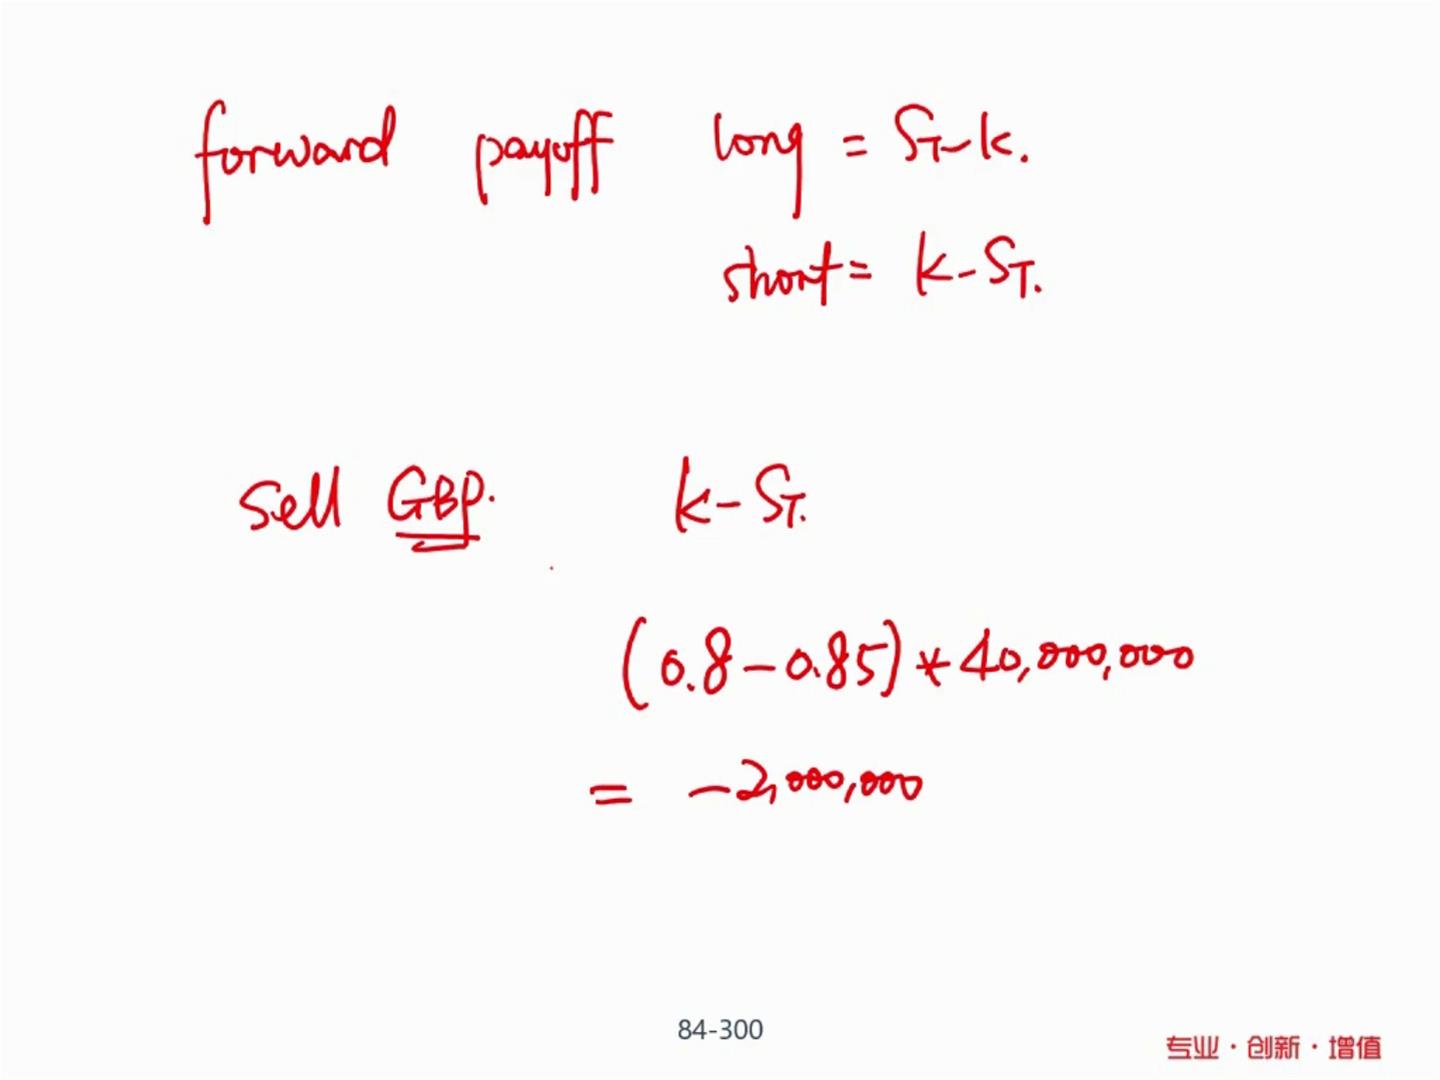 forward payoff long = ST-k.
short = k-ST.
Sell GBP. k-ST.
(0.8-0.85)*40,000,000
= -2,000,000
84-300
专业·创新·增值